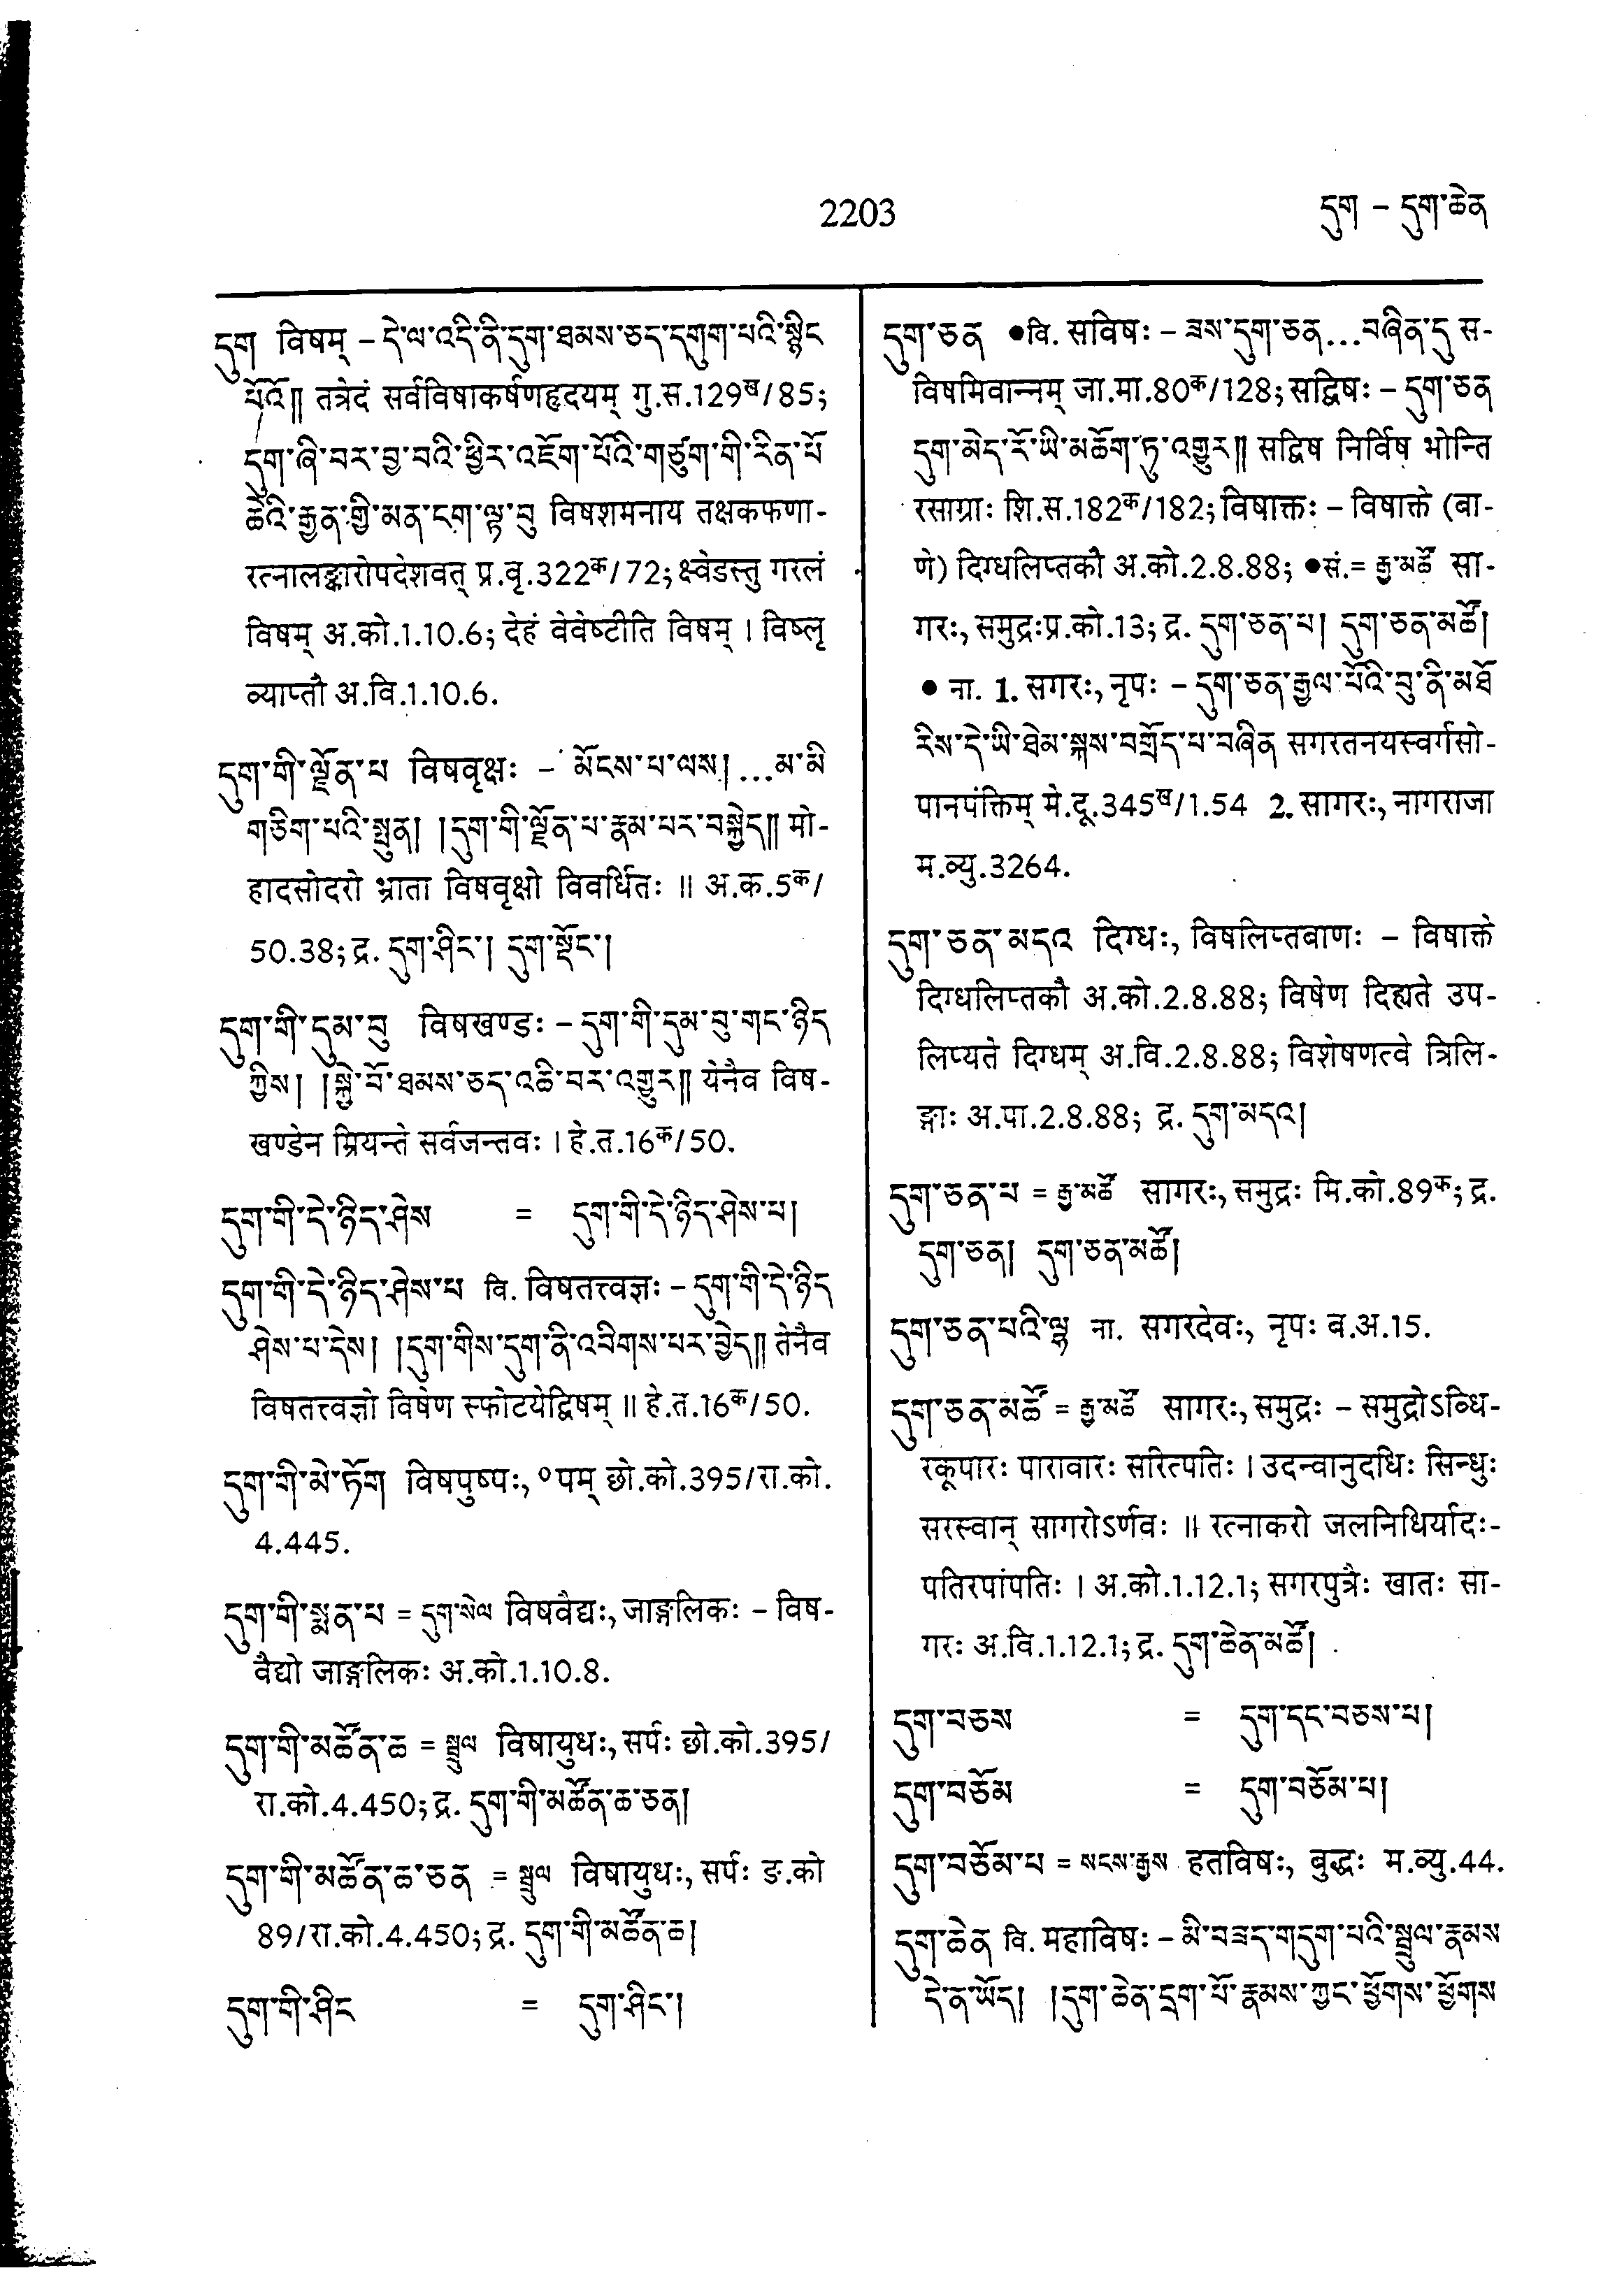 2203
དུག – དུག་ཆེན
དུག विषम् – དེ་ལ་འདི་ནི་དུག་ཐམས་ཅད་དགུག་པའི་སྙིང
པོའོ༎ तत्रेदं सर्वविषाकर्षणहृदयम् गु.स.129ख/85;
དུག་ཞི་བར་བྱ་བའི་ཕྱིར་འཇོག་པོའི་གཙུག་གི་རིན་པོ
ཆེའི་རྒྱན་གྱི་མན་ངག་ལྟ་བུ विषशमनाय तक्षकफणा-
रत्नालङ्कारोपदेशवत् प्र.वृ.322क/72; क्ष्वेडस्तु गरलं
विषम् अ.को.1.10.6; देहं वेवेष्टीति विषम् । विष्लृ
व्याप्तौ अ.वि.1.10.6.
དུག་གི་ལྗོན་པ विषवृक्षः – མོངས་པ་ལས། ...མ་མི
གཅིག་པའི་སྤུན། །དུག་གི་ལྗོན་པ་རྣམ་པར་བསྐྱེད༎ मो-
हादसोदरो भ्राता विषवृक्षो विवर्धितः ॥ अ.क.5क/
50.38; द्र. དུག་ཤིང་། དུག་སྡོང་།
དུག་གི་དུམ་བུ विषखण्डः – དུག་གི་དུམ་བུ་གང་ཉིད
ཀྱིས། །སྐྱེ་བོ་ཐམས་ཅད་འཆི་བར་འགྱུར༎ येनैव विष-
खण्डेन म्रियन्ते सर्वजन्तवः । हे.त.16क/50.
དུག་གི་དེ་ཉིད་ཤེས = དུག་གི་དེ་ཉིད་ཤེས་པ།
དུག་གི་དེ་ཉིད་ཤེས་པ वि. विषतत्त्वज्ञः – དུག་གི་དེ་ཉིད
ཤེས་པ་དེས། །དུག་གིས་དུག་ནི་འབིགས་པར་བྱེད༎ तेनैव
विषतत्त्वज्ञो विषेण स्फोटयेद्विषम् ॥ हे.त.16क/50.
དུག་གི་མེ་ཏོག विषपुष्पः, ०पम् छो.को.395/रा.को.
4.445.
དུག་གི་སྨན་པ = དུག་སེལ विषवैद्यः, जाङ्गलिकः – विष-
वैद्यो जाङ्गलिकः अ.को.1.10.8.
དུག་གི་མཚོན་ཆ = སྦྲུལ विषायुधः, सर्पः छो.को.395/
रा.को.4.450; द्र. དུག་གི་མཚོན་ཆ་ཅན།
དུག་གི་མཚོན་ཆ་ཅན = སྦྲུལ विषायुधः, सर्पः ङ.को
89/रा.को.4.450; द्र. དུག་གི་མཚོན་ཆ།
དུག་གི་ཤིང = དུག་ཤིང་།
དུག་ཅན ●वि. सविषः – ཟས་དུག་ཅན...བཞིན་དུ स-
विषमिवान्नम् जा.मा.80क/128; सद्विषः – དུག་ཅན
དུག་མེད་རོ་ཡི་མཆོག་ཏུ་འགྱུར༎ सद्विष निर्विष भोन्ति
रसाग्राः शि.स.182क/182; विषाक्तः – विषाक्ते (बा-
णे) दिग्धलिप्तकौ अ.को.2.8.88; ●सं.= རྒྱ་མཚོ सा-
गरः, समुद्रःप्र.को.13; द्र. དུག་ཅན་པ། དུག་ཅན་མཚོ།
● ना. 1. सगरः, नृपः – དུག་ཅན་རྒྱལ་པོའི་བུ་ནི་མཐོ
རིས་དེ་ཡི་ཐེམ་སྐས་བགྲོད་པ་བཞིན सगरतनयस्वर्गसो-
पानपंक्तिम् मे.दू.345ख/1.54 2. सागरः, नागराजा
म.व्यु.3264.
དུག་ཅན་མདའ दिग्धः, विषलिप्तबाणः – विषाक्ते
दिग्धलिप्तकौ अ.को.2.8.88; विषेण दिह्यते उप-
लिप्यते दिग्धम् अ.वि.2.8.88; विशेषणत्वे त्रिलि-
ङ्गाः अ.पा.2.8.88; द्र. དུག་མདའ།
དུག་ཅན་པ = རྒྱ་མཚོ सागरः, समुद्रः मि.को.89क; द्र.
དུག་ཅན། དུག་ཅན་མཚོ།
དུག་ཅན་པའི་ལྷ ना. सगरदेवः, नृपः ब.अ.15.
དུག་ཅན་མཚོ = རྒྱ་མཚོ सागरः, समुद्रः – समुद्रोऽब्धि-
रकूपारः पारावारः सरित्पतिः । उदन्वानुदधिः सिन्धुः
सरस्वान् सागरोऽर्णवः ॥ रत्नाकरो जलनिधिर्यादः-
पतिरपांपतिः । अ.को.1.12.1; सगरपुत्रैः खातः सा-
गरः अ.वि.1.12.1; द्र. དུག་ཆེན་མཚོ།
དུག་བཅས = དུག་དང་བཅས་པ།
དུག་བཅོམ = དུག་བཅོམ་པ།
དུག་བཅོམ་པ = སངས་རྒྱས हतविषः, बुद्धः म.व्यु.44.
དུག་ཆེན वि. महाविषः – མི་བཟད་གདུག་པའི་སྦྲུལ་རྣམས
དེ་ན་ཡོད། །དུག་ཆེན་དྲག་པོ་རྣམས་ཀྱང་ཕྱོགས་ཕྱོགས